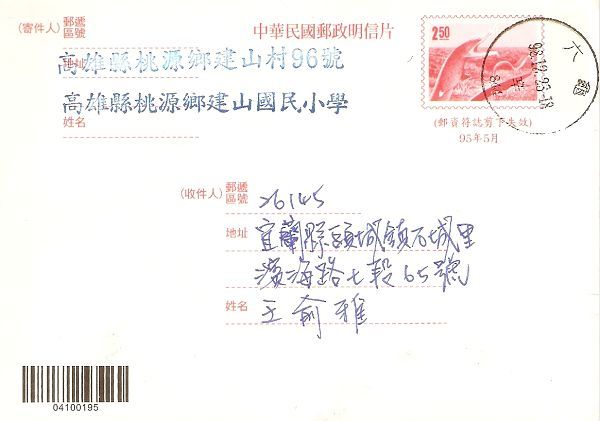 中華民國郵政明信片
(寄件人) 郵遞區號
地址
高雄縣桃源鄉建山村96號
高雄縣桃源鄉建山國民小學
姓名
2.50
(郵資符誌剪下失效)
95年5月
六龜
(收件人) 郵遞區號 26145
地址 宜蘭縣頭城鎮石城里
濱海路七段65號
姓名 王俞雅
04100195